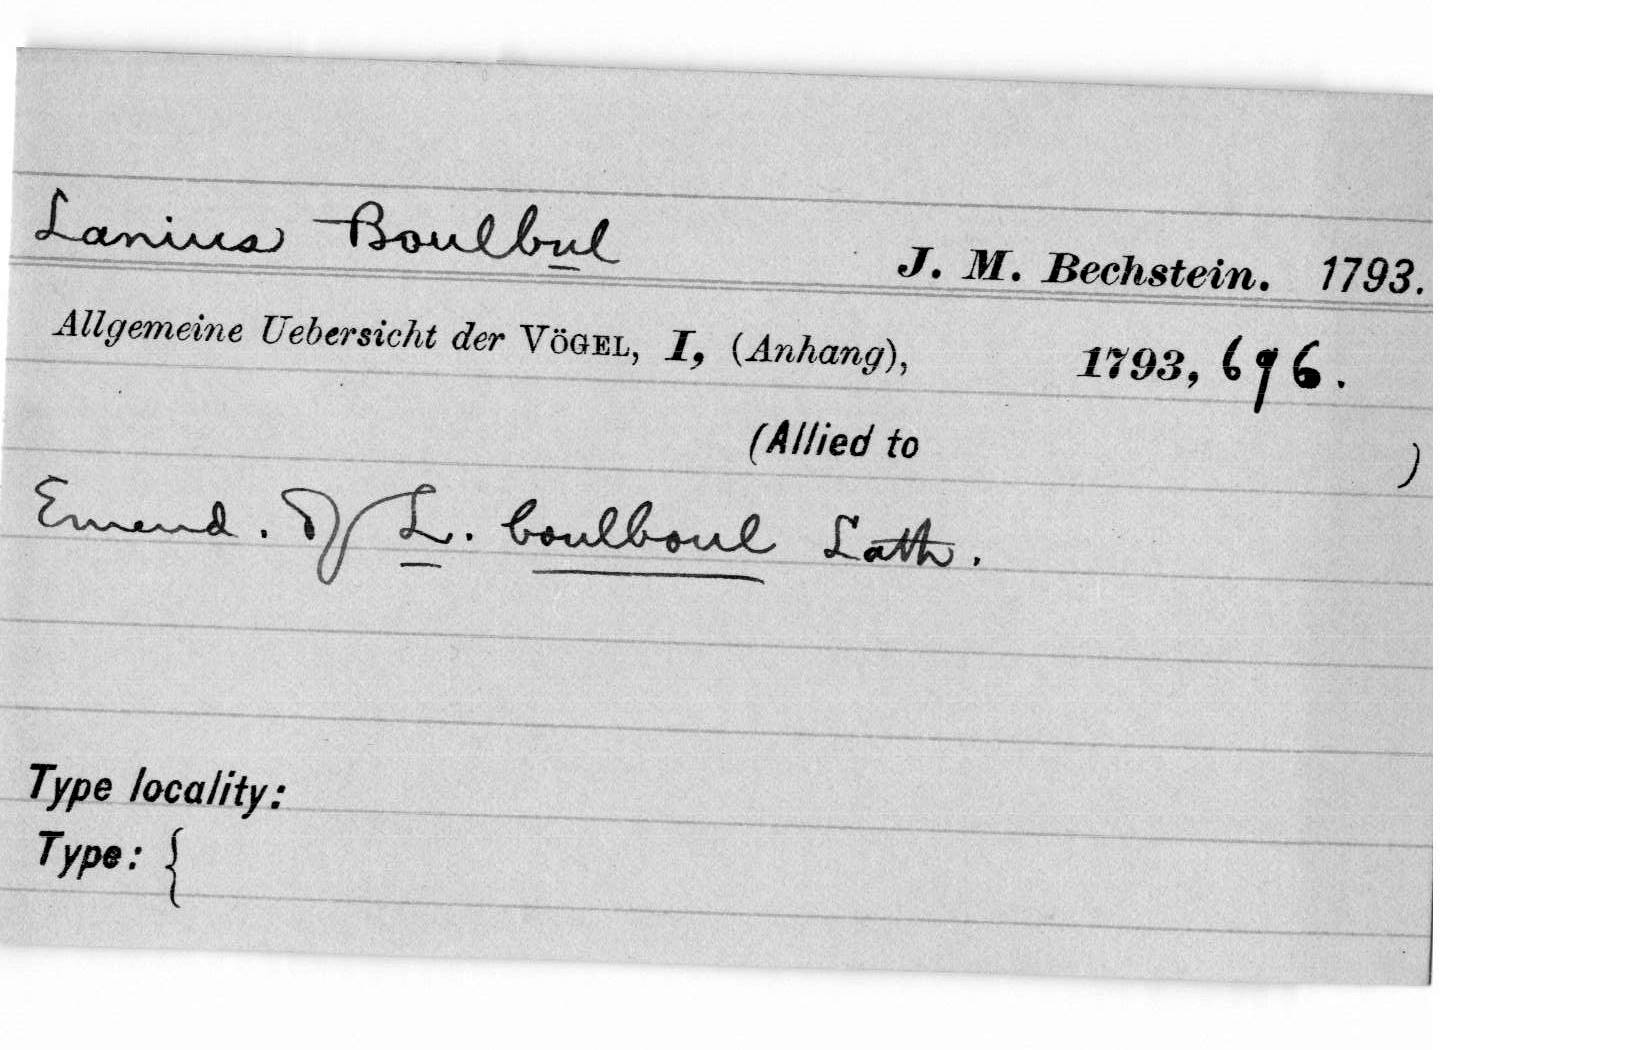 Lanius Boulbul J. M. Bechstein. 1793.
Allgemeine Uebersicht der VÖGEL, I, (Anhang), 1793, 696.
(Allied to )
Emend. of L. boulboul Lath.
Type locality:
Type: {